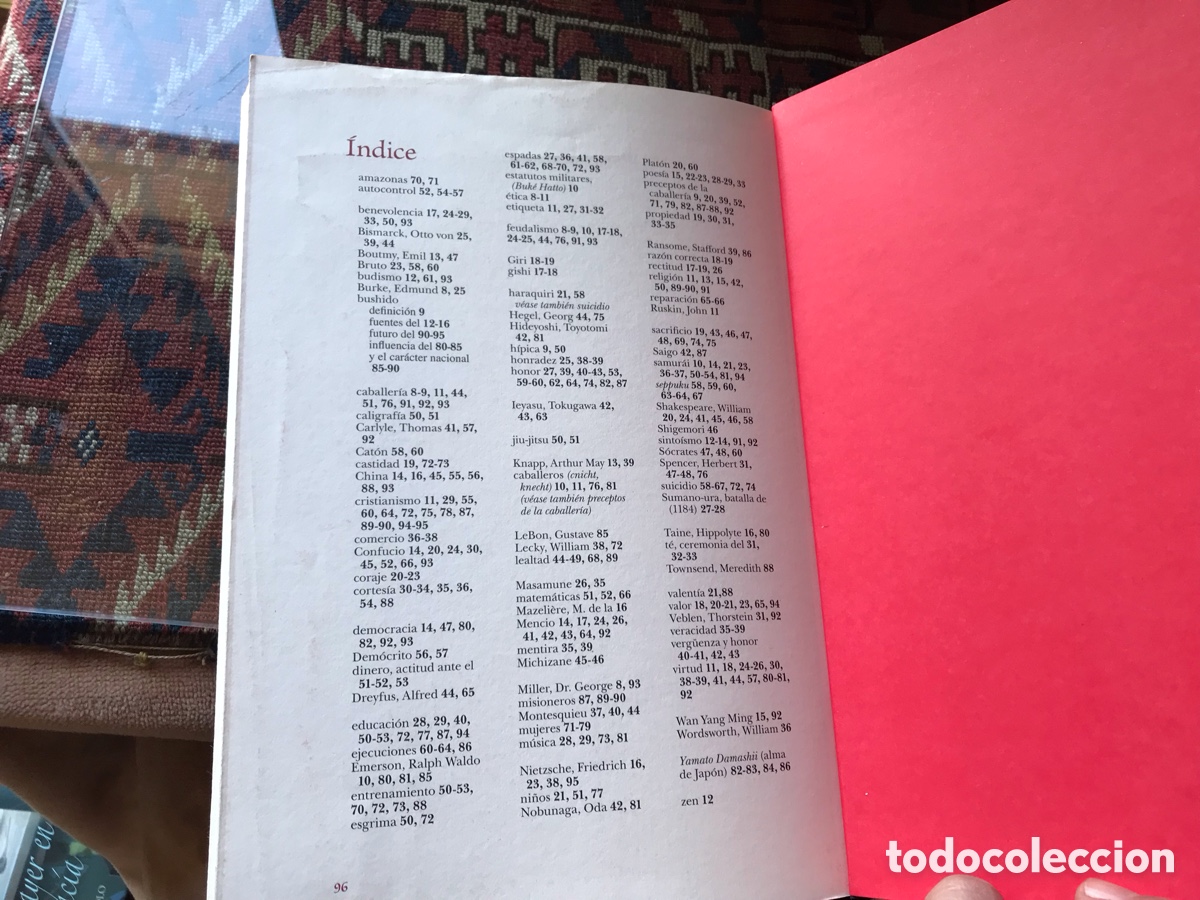 Índice
amazonas 70, 71
autocontrol 52, 54-57
benevolencia 17, 24-29,
33, 50, 93
Bismarck, Otto von 25,
39, 44
Boutmy, Emil 13, 47
Bruto 23, 58, 60
budismo 12, 61, 93
Burke, Edmund 8, 25
bushido
definición 9
fuentes del 12-16
futuro del 90-95
influencia del 80-85
y el carácter nacional
85-90
caballería 8-9, 11, 44,
51, 76, 91, 92, 93
caligrafía 50, 51
Carlyle, Thomas 41, 57,
92
Catón 58, 60
castidad 19, 72-73
China 14, 16, 45, 55, 56,
88, 93
cristianismo 11, 29, 55,
60, 64, 72, 75, 78, 87,
89-90, 94-95
comercio 36-38
Confucio 14, 20, 24, 30,
45, 52, 66, 93
coraje 20-23
cortesía 30-34, 35, 36,
54, 88
democracia 14, 47, 80,
82, 92, 93
Demócrito 56, 57
dinero, actitud ante el
51-52, 53
Dreyfus, Alfred 44, 65
educación 28, 29, 40,
50-53, 72, 77, 87, 94
ejecuciones 60-64, 86
Emerson, Ralph Waldo
10, 80, 81, 85
entrenamiento 50-53,
70, 72, 73, 88
esgrima 50, 72
espadas 27, 36, 41, 58,
61-62, 68-70, 72, 93
estatutos militares,
(Buké Hatto) 10
ética 8-11
etiqueta 11, 27, 31-32
feudalismo 8-9, 10, 17-18,
24-25, 44, 76, 91, 93
Giri 18-19
gishi 17-18
haraquiri 21, 58
véase también suicidio
Hegel, Georg 44, 75
Hideyoshi, Toyotomi
42, 81
hípica 9, 50
honradez 25, 38-39
honor 27, 39, 40-43, 53,
59-60, 62, 64, 74, 82, 87
Ieyasu, Tokugawa 42,
43, 63
jiu-jitsu 50, 51
Knapp, Arthur May 13, 39
caballeros (cnicht,
knecht) 10, 11, 76, 81
(véase también preceptos
de la caballería)
LeBon, Gustave 85
Lecky, William 38, 72
lealtad 44-49, 68, 89
Masamune 26, 35
matemáticas 51, 52, 66
Mazelière, M. de la 16
Mencio 14, 17, 24, 26,
41, 42, 43, 64, 92
mentira 35, 39
Michizane 45-46
Miller, Dr. George 8, 93
misioneros 87, 89-90
Montesquieu 37, 40, 44
mujeres 71-79
música 28, 29, 73, 81
Nietzsche, Friedrich 16,
23, 38, 95
niños 21, 51, 77
Nobunaga, Oda 42, 81
Platón 20, 60
poesía 15, 22-23, 28-29, 33
preceptos de la
caballería 9, 20, 39, 52,
71, 79, 82, 87-88, 92
propiedad 19, 30, 31,
33-35
Ransome, Stafford 39, 86
razón correcta 18-19
rectitud 17-19, 26
religión 11, 13, 15, 42,
50, 89-90, 91
reparación 65-66
Ruskin, John 11
sacrificio 19, 43, 46, 47,
48, 69, 74, 75
Saigo 42, 87
samurái 10, 14, 21, 23,
36-37, 50-54, 81, 94
seppuku 58, 59, 60,
63-64, 67
Shakespeare, William
20, 24, 41, 45, 46, 58
Shigemori 46
sintoísmo 12-14, 91, 92
Sócrates 47, 48, 60
Spencer, Herbert 31,
47-48, 76
suicidio 58-67, 72, 74
Sumano-ura, batalla de
(1184) 27-28
Taine, Hippolyte 16, 80
té, ceremonia del 31,
32-33
Townsend, Meredith 88
valentía 21,88
valor 18, 20-21, 23, 65, 94
Veblen, Thorstein 31, 92
veracidad 35-39
vergüenza y honor
40-41, 42, 43
virtud 11, 18, 24-26, 30,
38-39, 41, 44, 57, 80-81,
92
Wan Yang Ming 15, 92
Wordsworth, William 36
Yamato Damashii (alma
de Japón) 82-83, 84, 86
zen 12
96
todocoleccion